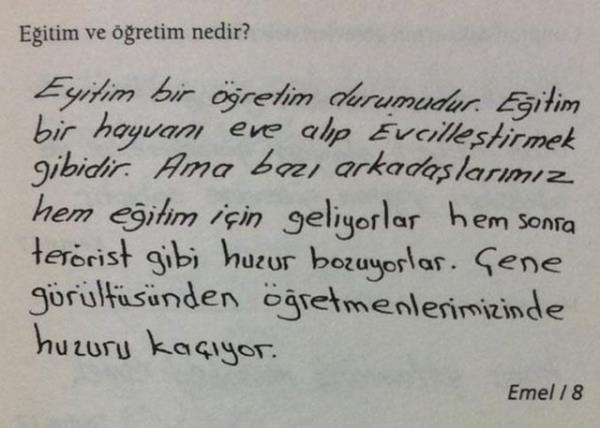 Eğitim ve öğretim nedir?
Eyitim bir öğretim durumudur. Eğitim
bir hayvanı eve alıp Evcilleştirmek
gibidir. Ama bazı arkadaşlarımız
hem eğitim için geliyorlar hem sonra
terörist gibi huzur bozuyorlar. Çene
gürültüsünden öğretmenlerimizinde
huzuru kaçıyor.
Emel / 8